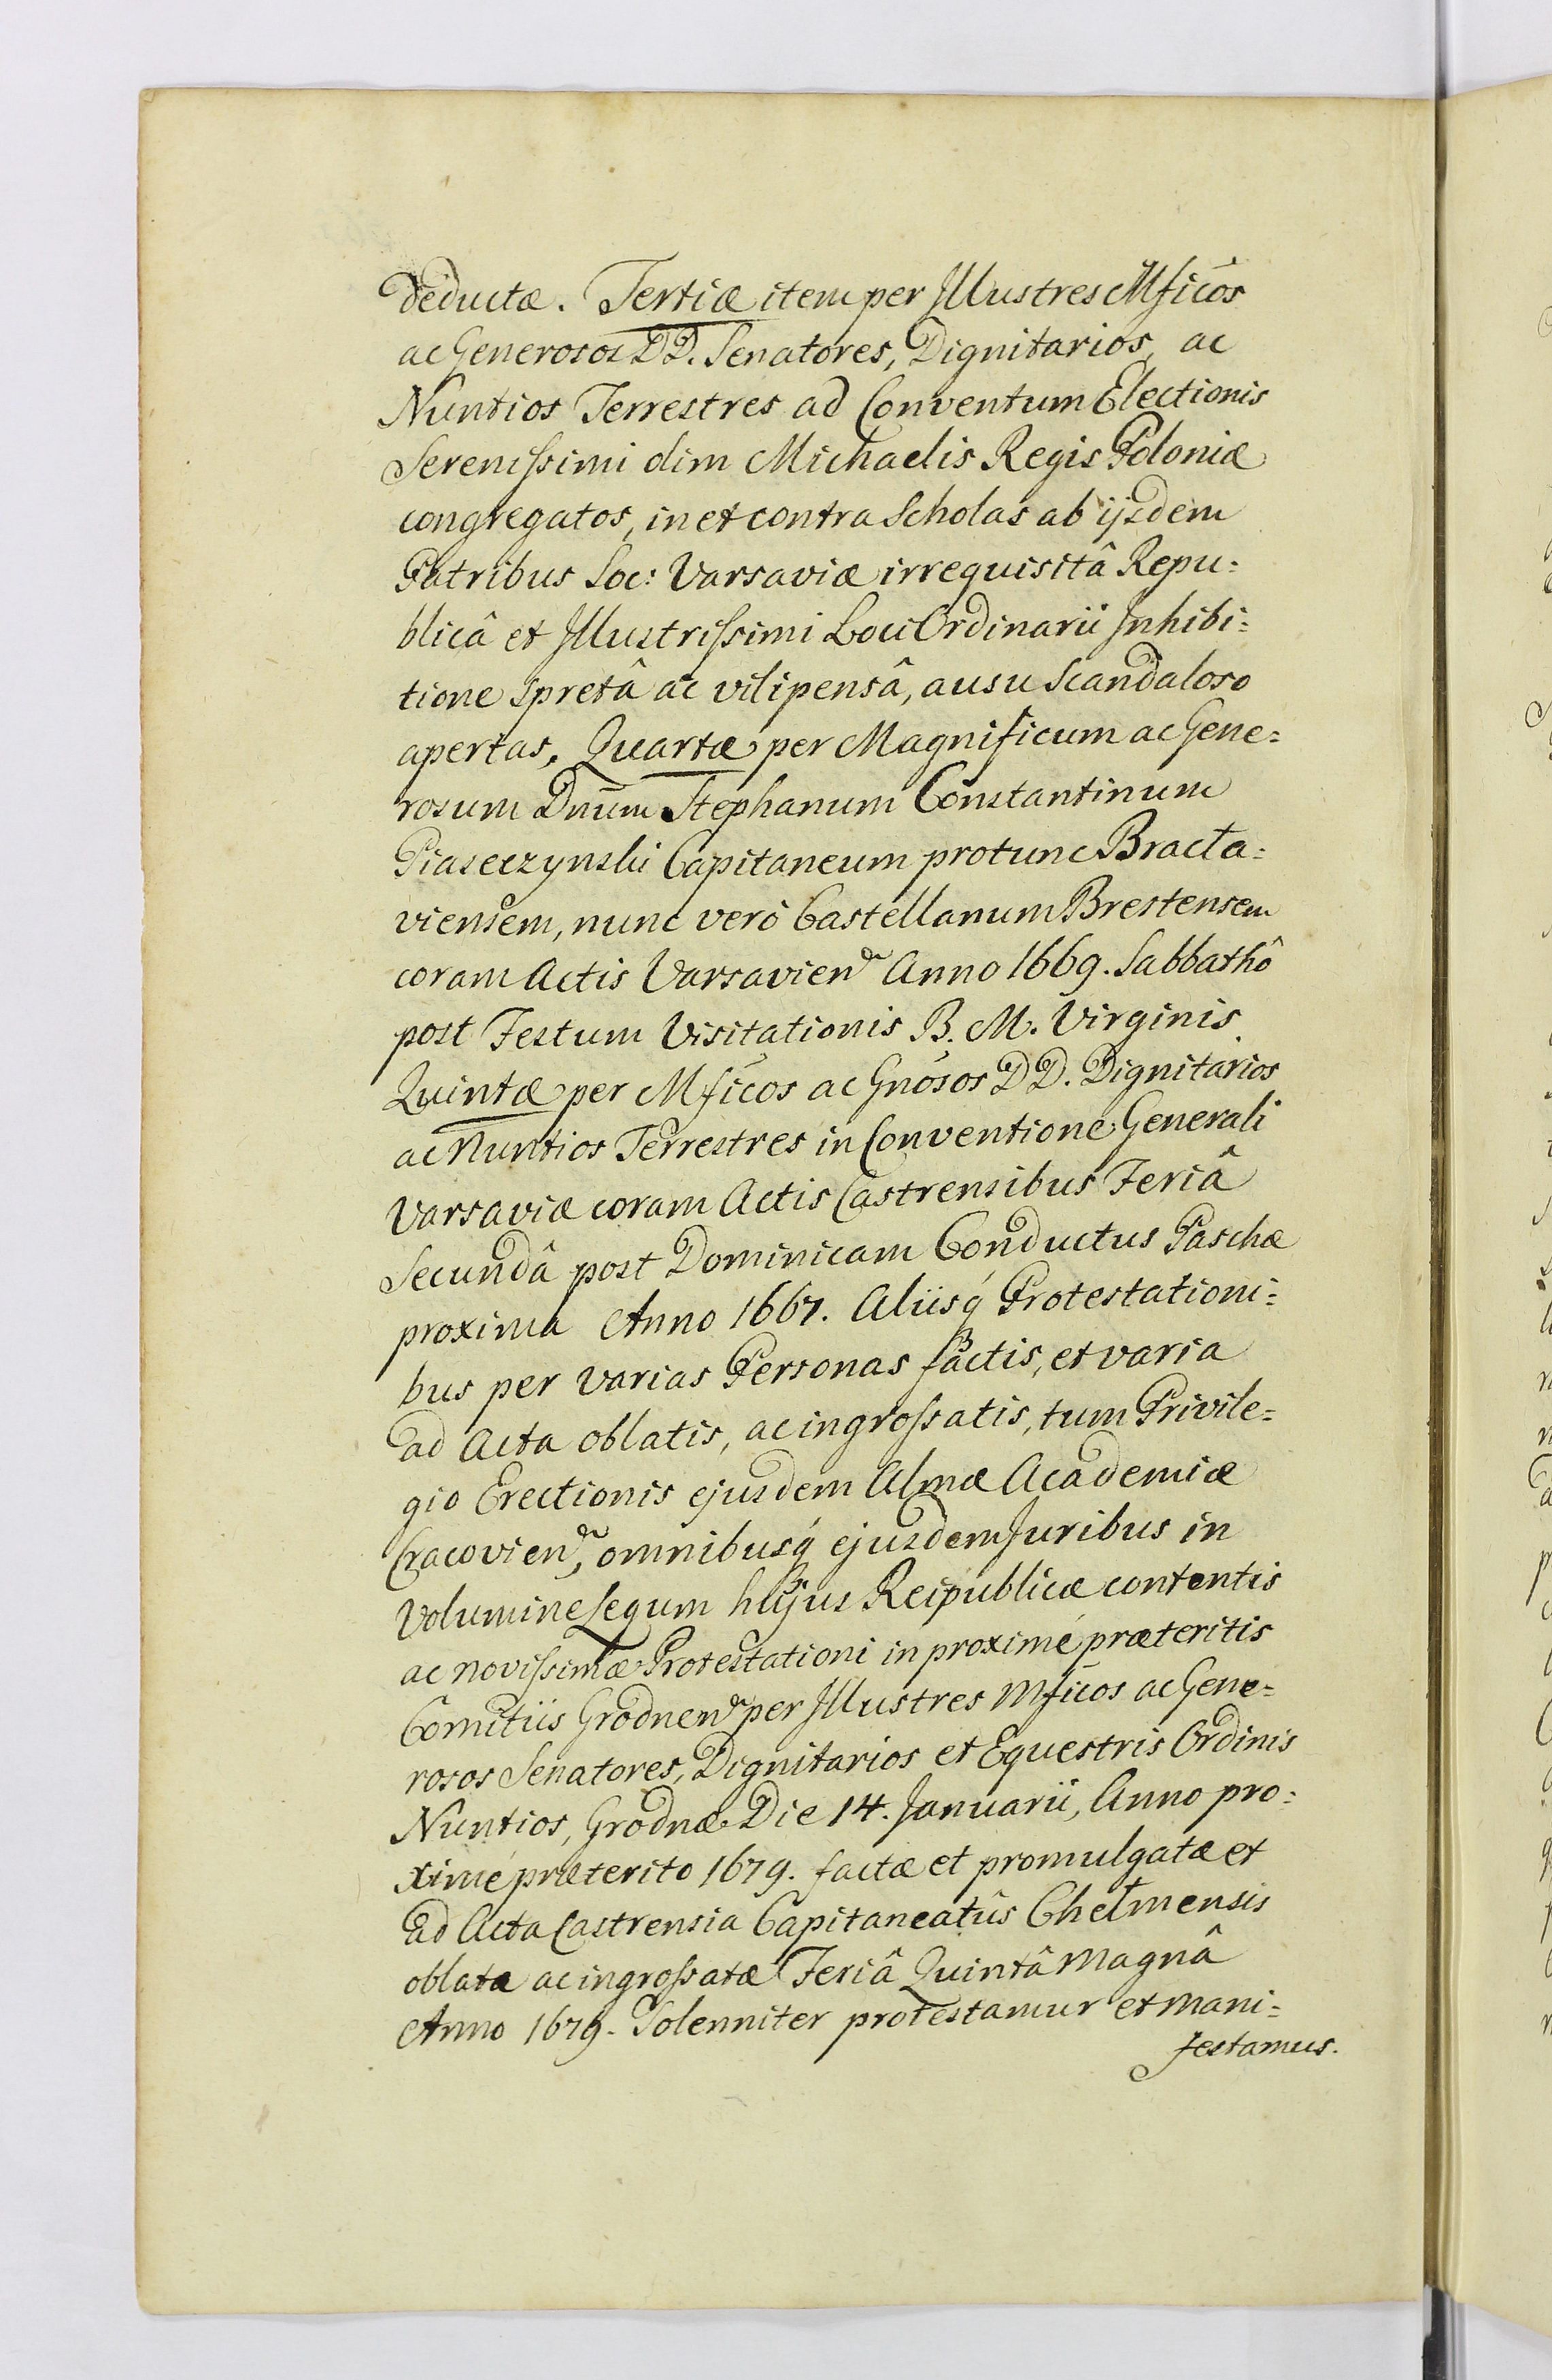 deductæ. Tertiæ item per Jllustres Mficos
ac Generosos DD. Senatores, Dignitarios, ac
Nuntios Terrestres ad Conventum Electionis
Serenissimi olim Michaelis Regis Poloniæ
congregatos, in et contra Scholas ab ijsdem
Patribus Soc: Varsaviæ irrequisitâ Repu:
blicâ et Jllustrissimi Loci Ordinarii Jnhibi:
tione spretâ ac vilipensâ, ausu scandaloso
apertas, Quartæ per Magnificum ac Gene:
rosum Dnum Stephanum Constantinum
Piaseczynski Capitaneum protunc Bracla:
viensem, nunc verò Castellanum Brestensem
coram Actis Varsavien. Anno 1669. Sabbathô
post Festum Visitationis B. M. Virginis
Quintæ per Mficos ac Gnosos DD. Dignitarios
ac Nuntios Terrestres in Conventione Generali
Varsaviæ coram Actis Castrensibus Feriâ
Secundâ post Dominicam Conductus Paschæ
proxima Anno 1667. Aliisq́ Protestationi:
bus per varias Personas factis, et varia
ad Acta oblatis, ac ingrossatis, tum Privile=
gio Erectionis ejusdem Almæ Academiæ
Cracovien., omnibusq́ ejusdem Juribus in
Volumine Legum hujus Reipublicæ contentis
ac novissimæ Protestationi in proximé præteritis
Comitiis Grodnen. per Jllustres Mficos ac Gene=
rosos Senatores, Dignitarios et Equestris Ordinis
Nuntios, Grodnæ Die 14. Januarii, Anno pro:
ximé præterito 1679. factæ et promulgatæ et
ad Acta Castrensia Capitaneatûs Chelmensis
oblata ac ingrossatæ Feriâ Quintâ Magnâ
Anno 1679. Solenniter protestamur et mani=
festamus.